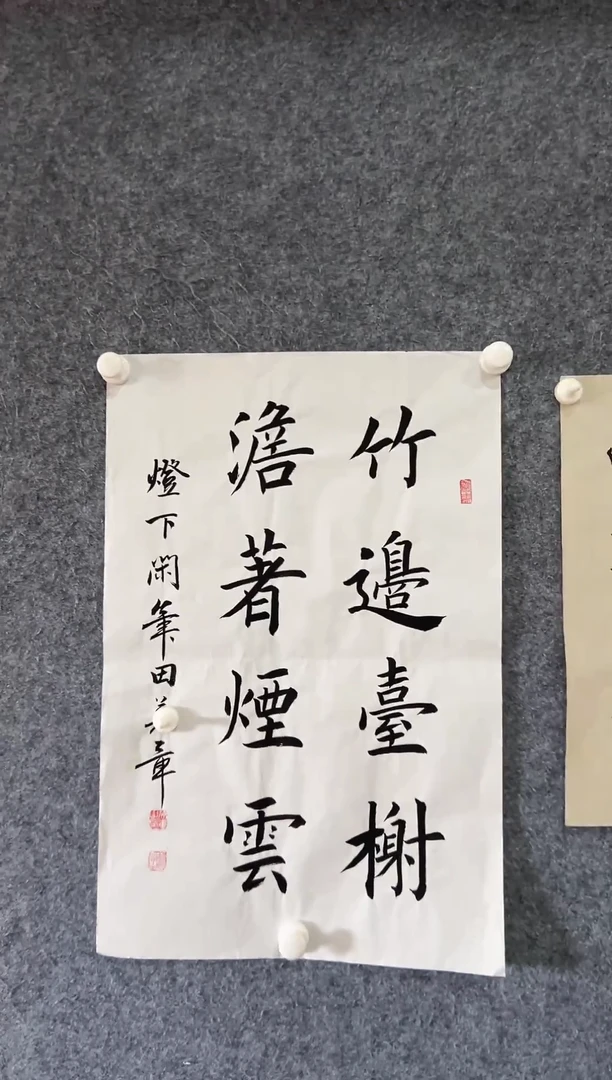 竹邉臺榭
澹著煙雲
燈下閑筆田章